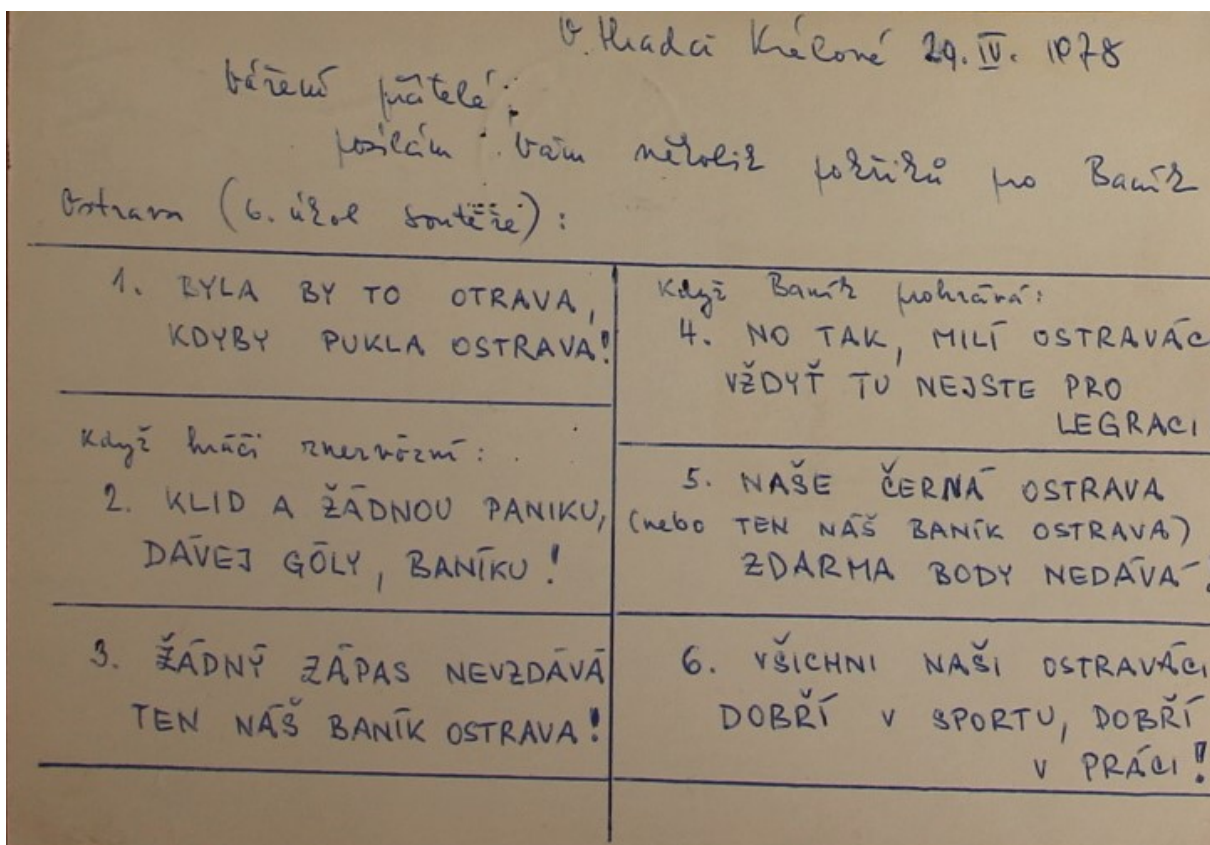 V Hradci Králové 29. IV. 1978
Vážení přátelé,
posílám Vám několik pokřiků pro Baník
Ostrava (6. úkol soutěže):
1. BYLA BY TO OTRAVA,
KDYBY PUKLA OSTRAVA!
Když hráči znervózní:
2. KLID A ŽÁDNOU PANIKU,
DÁVEJ GÓLY, BANÍKU!
3. ŽÁDNÝ ZÁPAS NEVZDÁVÁ
TEN NÁŠ BANÍK OSTRAVA!
Když Baník prohrává:
4. NO TAK, MILÍ OSTRAVÁC
VŽDYŤ TU NEJSTE PRO
LEGRACI
5. NAŠE ČERNÁ OSTRAVA
(nebo TEN NÁŠ BANÍK OSTRAVA)
ZDARMA BODY NEDÁVÁ.
6. VŠICHNI NAŠI OSTRAVÁCI
DOBŘÍ V SPORTU, DOBŘÍ
V PRÁCI!